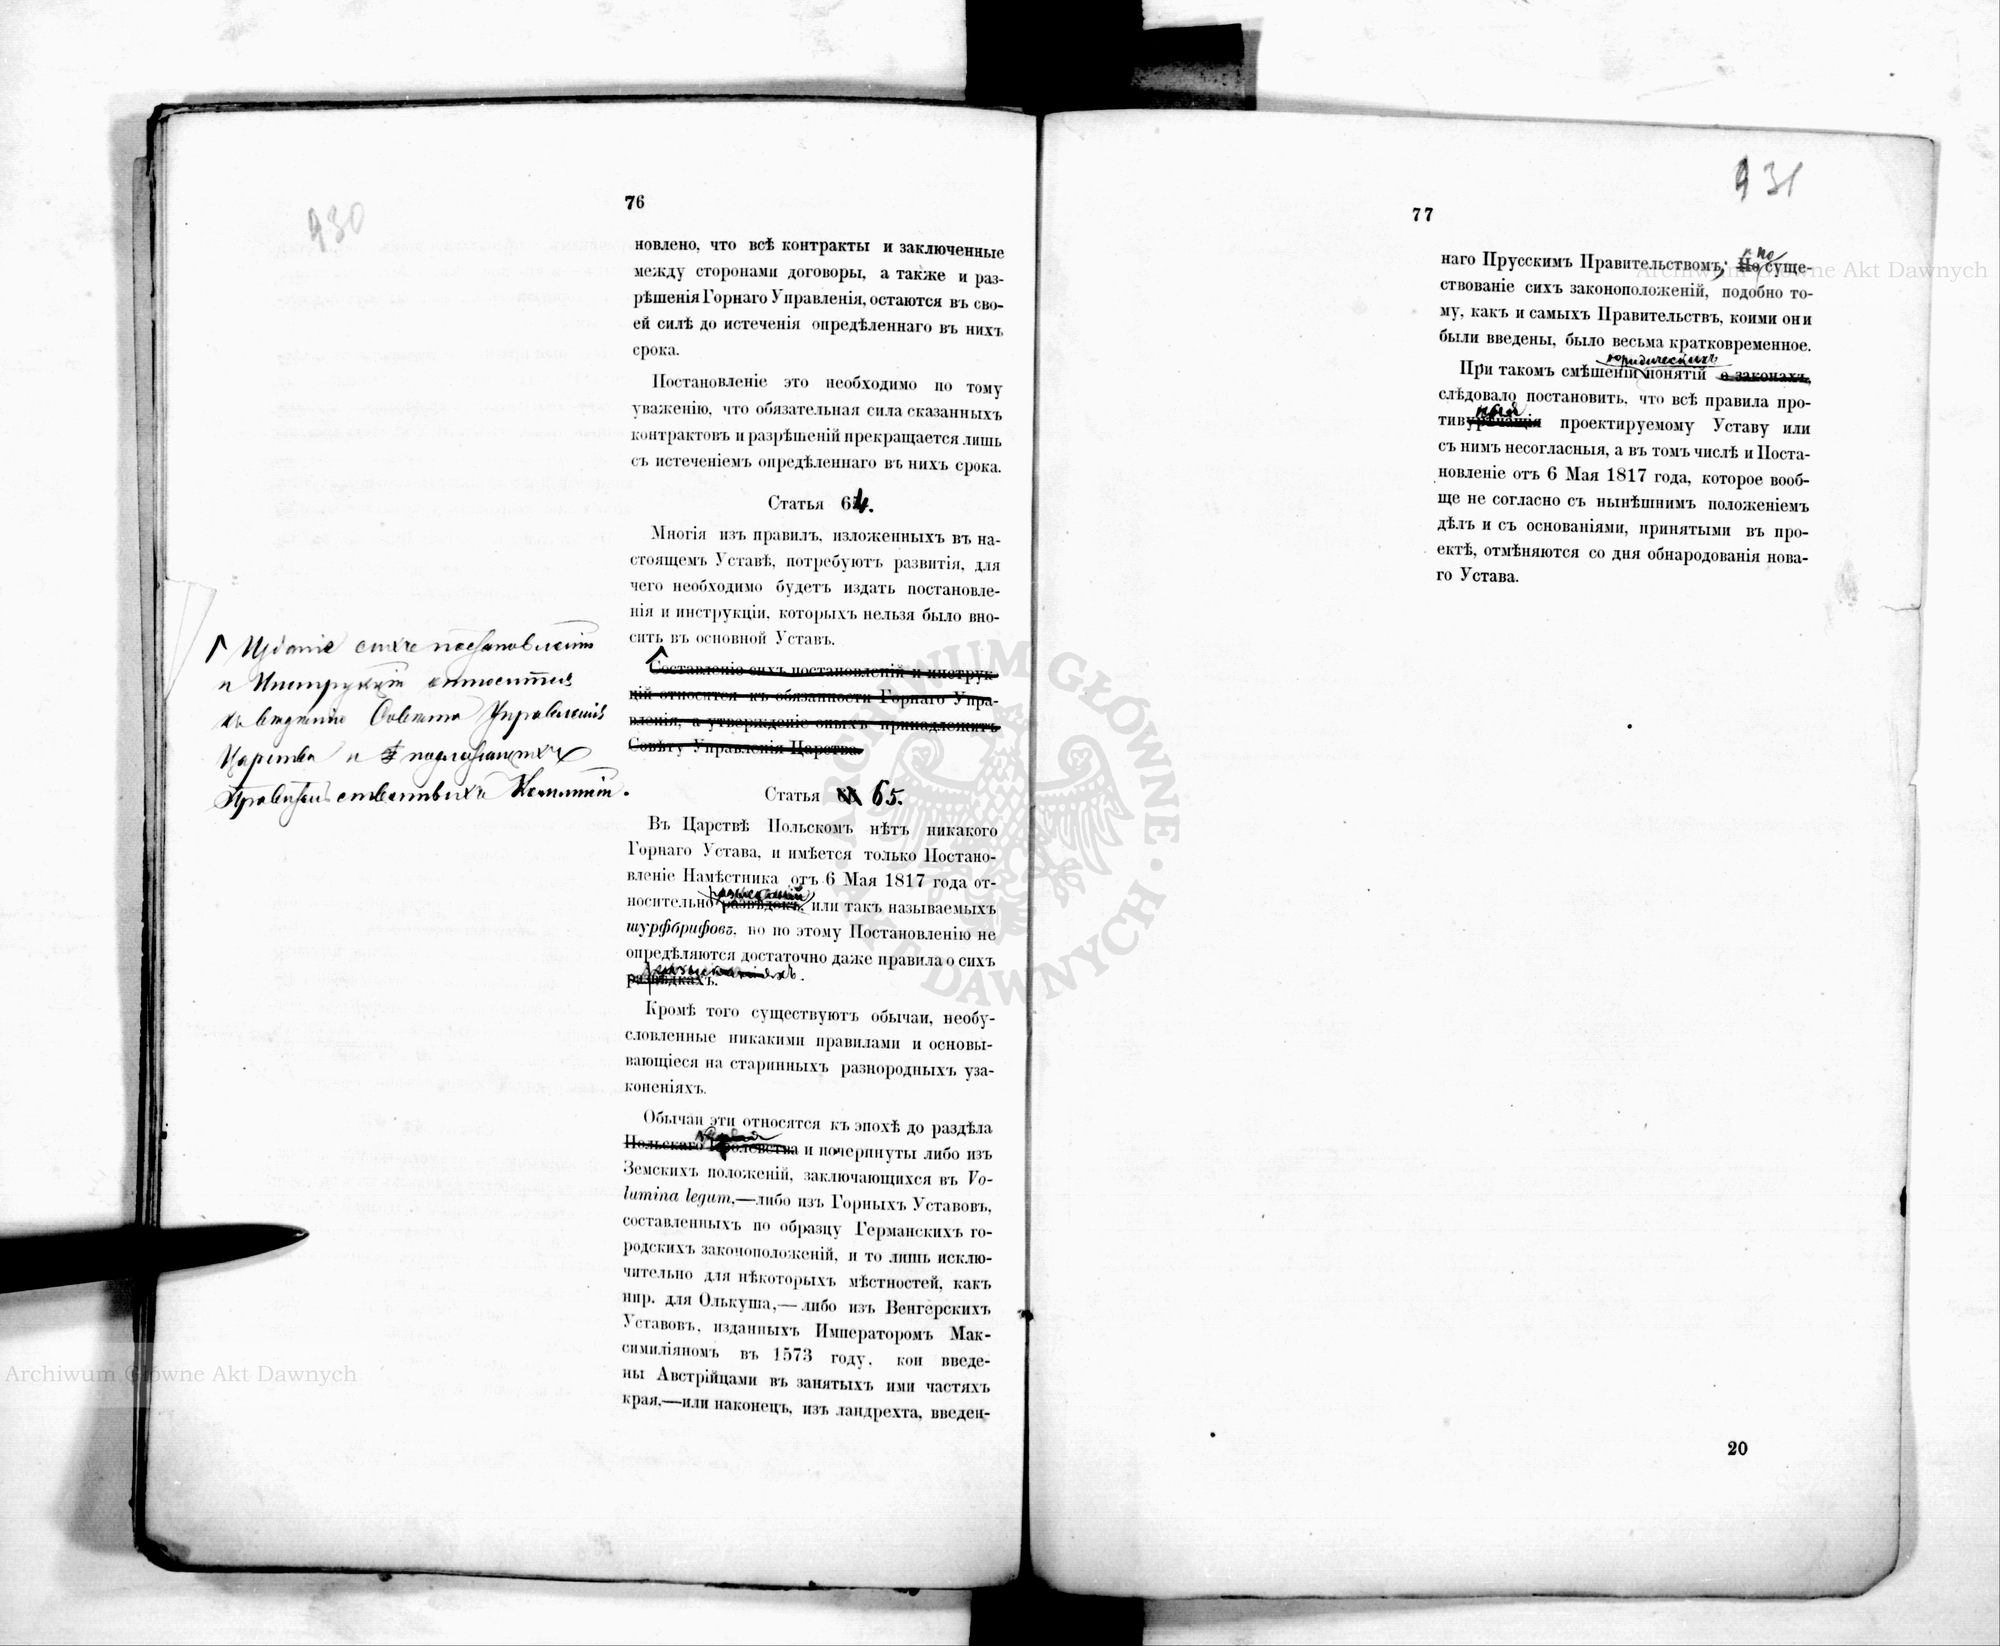 930
76
новлено, что всѣ контракты и заключенные
между сторонами договоры, а также и раз-
рѣшенія Горнаго Управленія, остаются въ сво-
ей силѣ до истеченія опредѣленнаго въ нихъ
срока.
Постановленіе это необходимо по тому
уваженію, что обязательная сила сказанныхъ
контрактовъ и разрѣшеній прекращается лишь
съ истеченіемъ опредѣленнаго въ нихъ срока.
Статья 64.
Многія изъ правилъ, изложенныхъ въ на-
стоящемъ Уставѣ, потребуютъ развитія, для
чего необходимо будетъ издать постановле-
нія и инструкціи, которыхъ нельзя было вно-
сить въ основной Уставъ.
Составленіе сихъ постановленій и инструк-
цій относится къ обязанности Горнаго Упра-
вленія, а утвержденіе оныхъ принадлежитъ
Совѣту Управленія Царства.
Изданіе сихъ постановленій
и Инструкцій относится
къ вѣдѣнію Совѣта Управленія
Царства и подлежащихъ
Правительственныхъ Коммисій.
Статья 65.
Въ Царствѣ Польскомъ нѣтъ никакого
Горнаго Устава, и имѣется только Постано-
вленіе Намѣстника отъ 6 Мая 1817 года от-
разысканій
носительно развѣдокъ, или такъ называемыхъ
шурфбрифовъ, но по этому Постановленію не
опредѣляются достаточно даже правила о сихъ
разысканіяхъ.
развѣдкахъ.
Кромѣ того существуютъ обычаи, необу-
словленные никакими правилами и основы-
вающіеся на старинныхъ разнородныхъ уза-
коненіяхъ.
Обычаи эти относятся къ эпохѣ до раздѣла
Польскаго Королевства и почерпнуты либо изъ
Земскихъ положеній, заключающихся въ Vo-
lumina legum,—либо изъ Горныхъ Уставовъ,
составленныхъ по образцу Германскихъ го-
родскихъ законоположеній, и то лишь исклю-
чительно для нѣкоторыхъ мѣстностей, какъ
нпр. для Олькуша,—либо изъ Венгерскихъ
Уставовъ, изданныхъ Императоромъ Мак-
симиліяномъ въ 1573 году, кои введе-
ны Австрійцами въ занятыхъ ими частяхъ
края,—или наконецъ, изъ ландрехта, введен-
931
77
но
наго Прусскимъ Правительствомъ; Но суще-
ствованіе сихъ законоположеній, подобно то-
му, какъ и самыхъ Правительствъ, коими они
были введены, было весьма кратковременное.
юридическихъ
При такомъ смѣшеніи понятій о законахъ,
слѣдовало постановить, что всѣ правила про-
ныя
тивурѣчащія проектируемому Уставу или
съ нимъ несогласныя, а въ томъ числѣ и Поста-
новленіе отъ 6 Мая 1817 года, которое вооб-
ще не согласно съ нынѣшнимъ положеніемъ
дѣлъ и съ основаніями, принятыми въ про-
ектѣ, отмѣняются со дня обнародованія нова-
го Устава.
20
Archiwum Główne Akt Dawnych
Archiwum Główne Akt Dawnych
ARCHIWUM GŁÓWNE AKT DAWNYCH